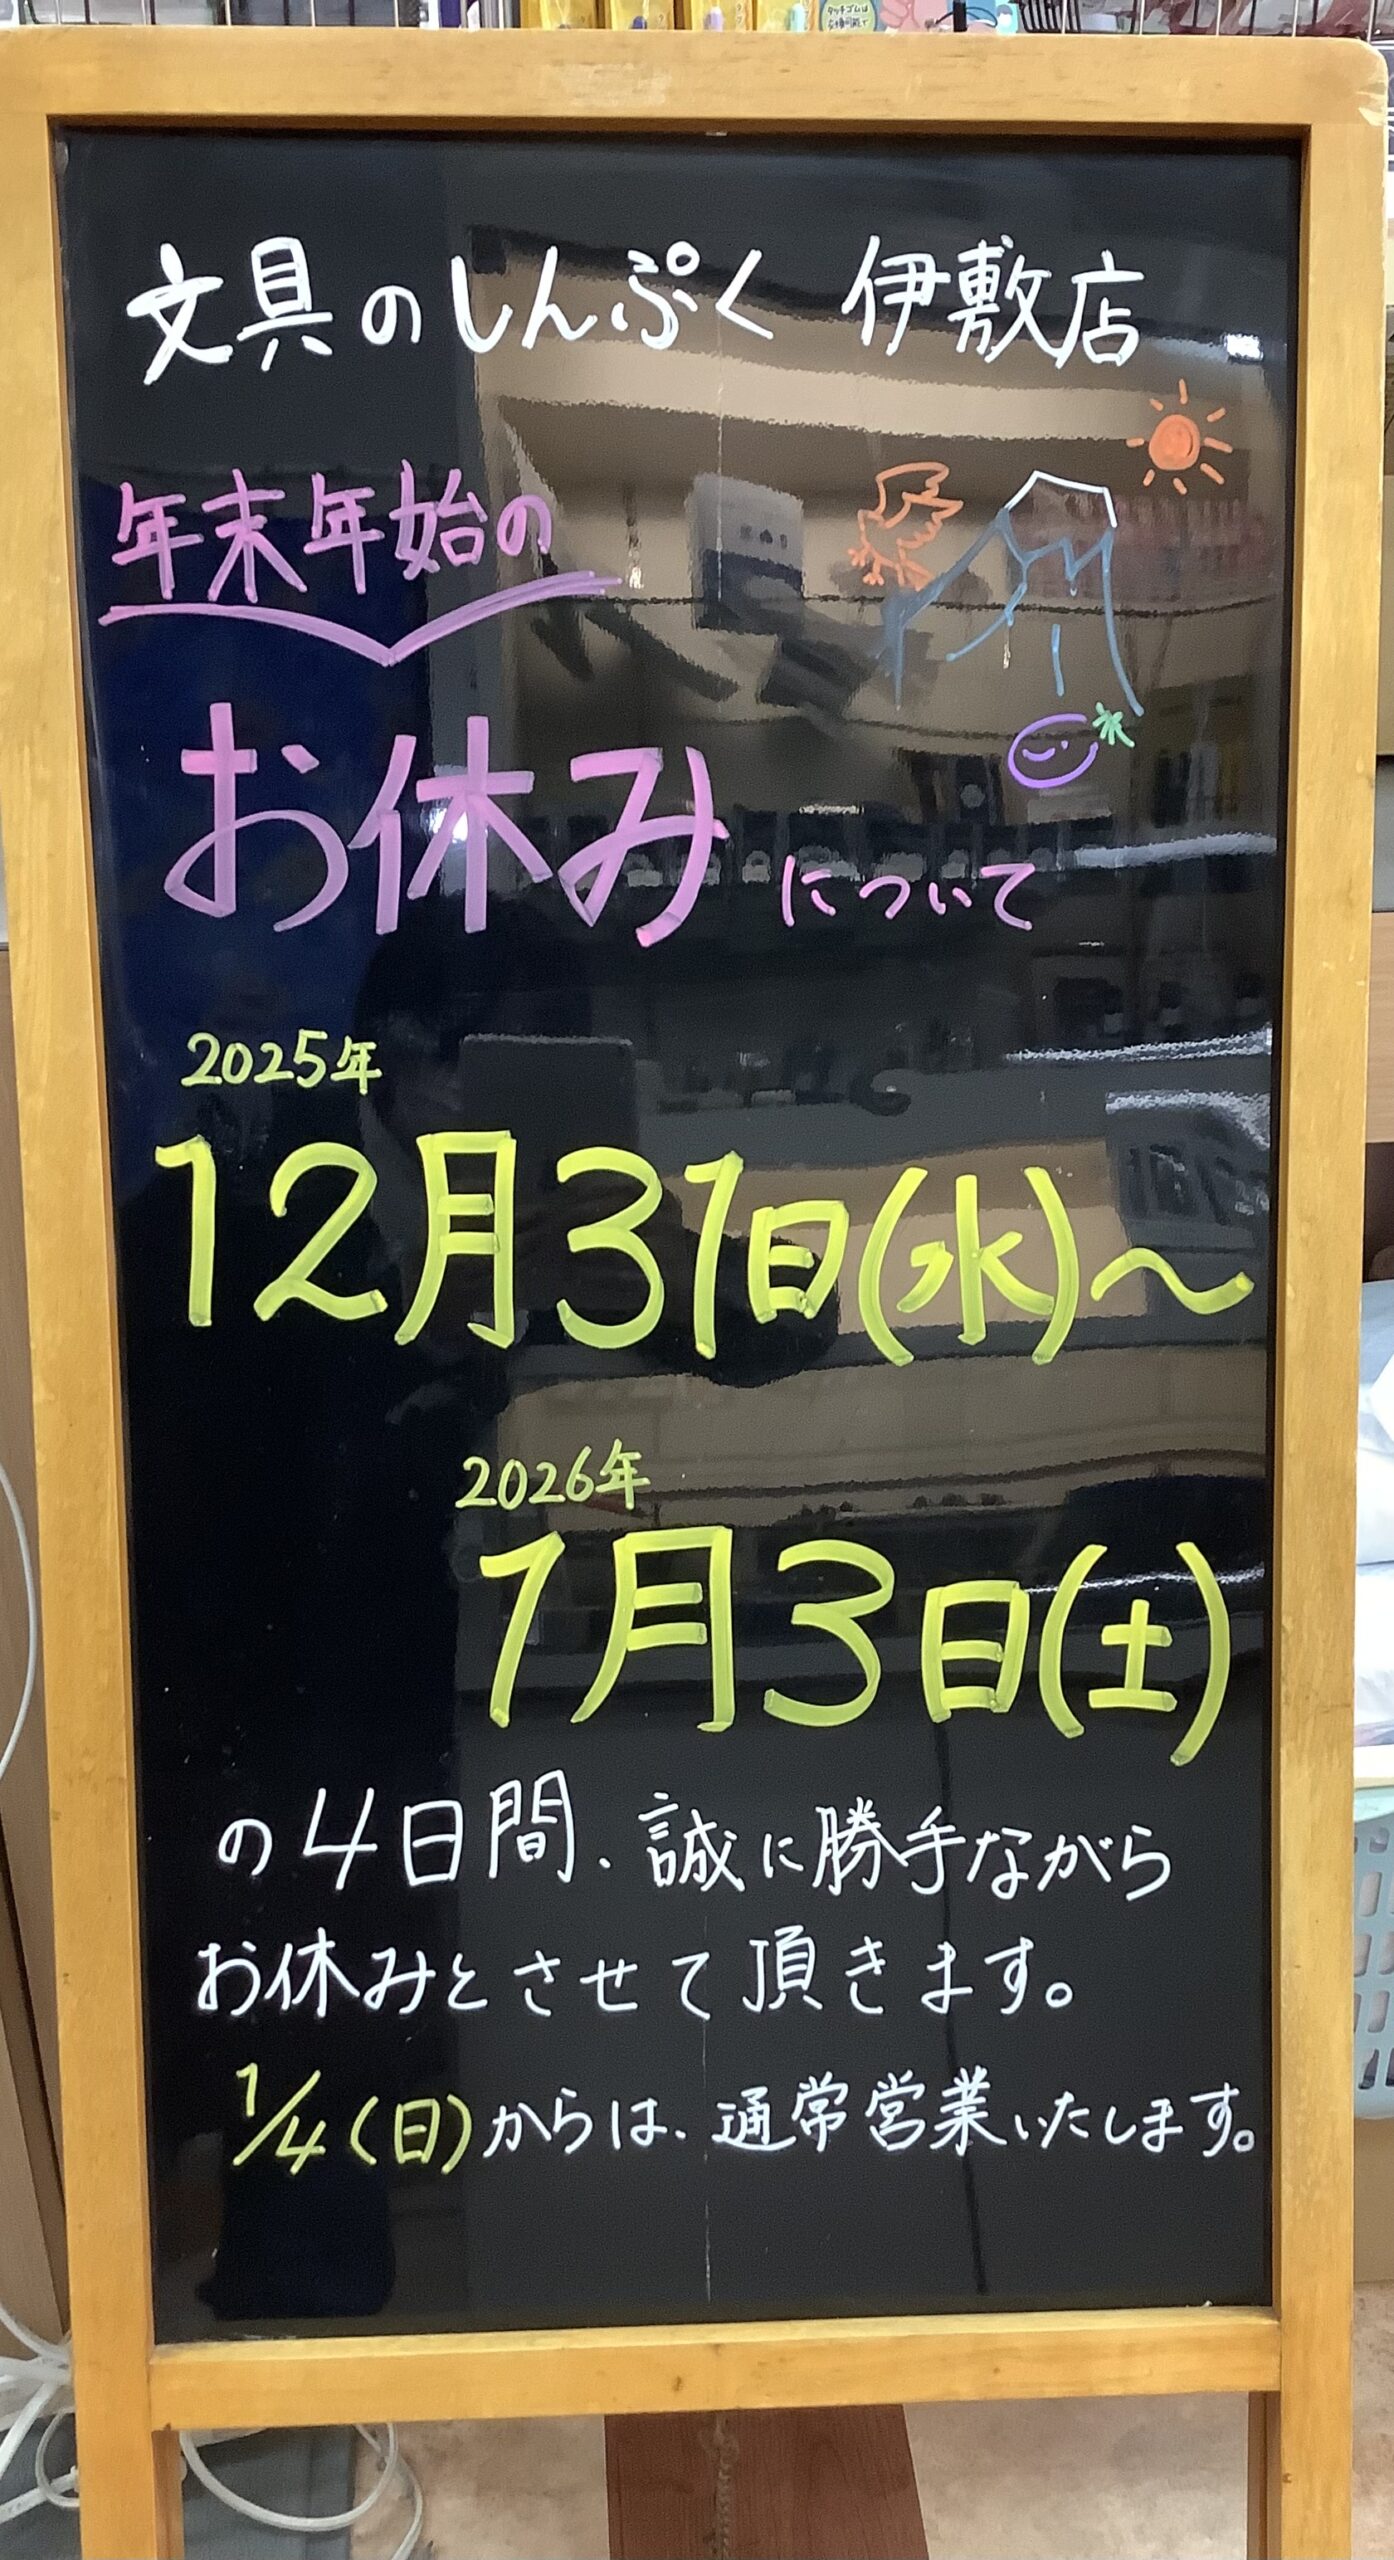 タッチゴムは
交換可能で
文具のしんぷく 伊敷店
年末年始の
お休みについて
2025年
12月31日(水)～
2026年
1月3日(土)
の4日間、誠に勝手ながら
お休みとさせて頂きます。
1/4(日)からは、通常営業いたします。